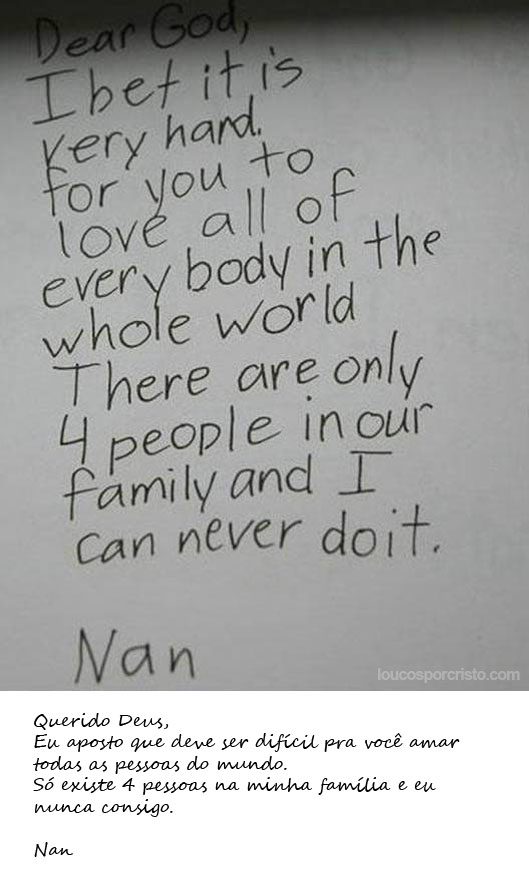 Dear God,
I bet it is
very hard.
for you to
love all of
every body in the
whole world
There are only
4 people in our
family and I
can never do it.
Nan
loucosporcristo.com
Querido Deus,
Eu aposto que deve ser difícil pra você amar
todas as pessoas do mundo.
Só existe 4 pessoas na minha família e eu
nunca consigo.
Nan